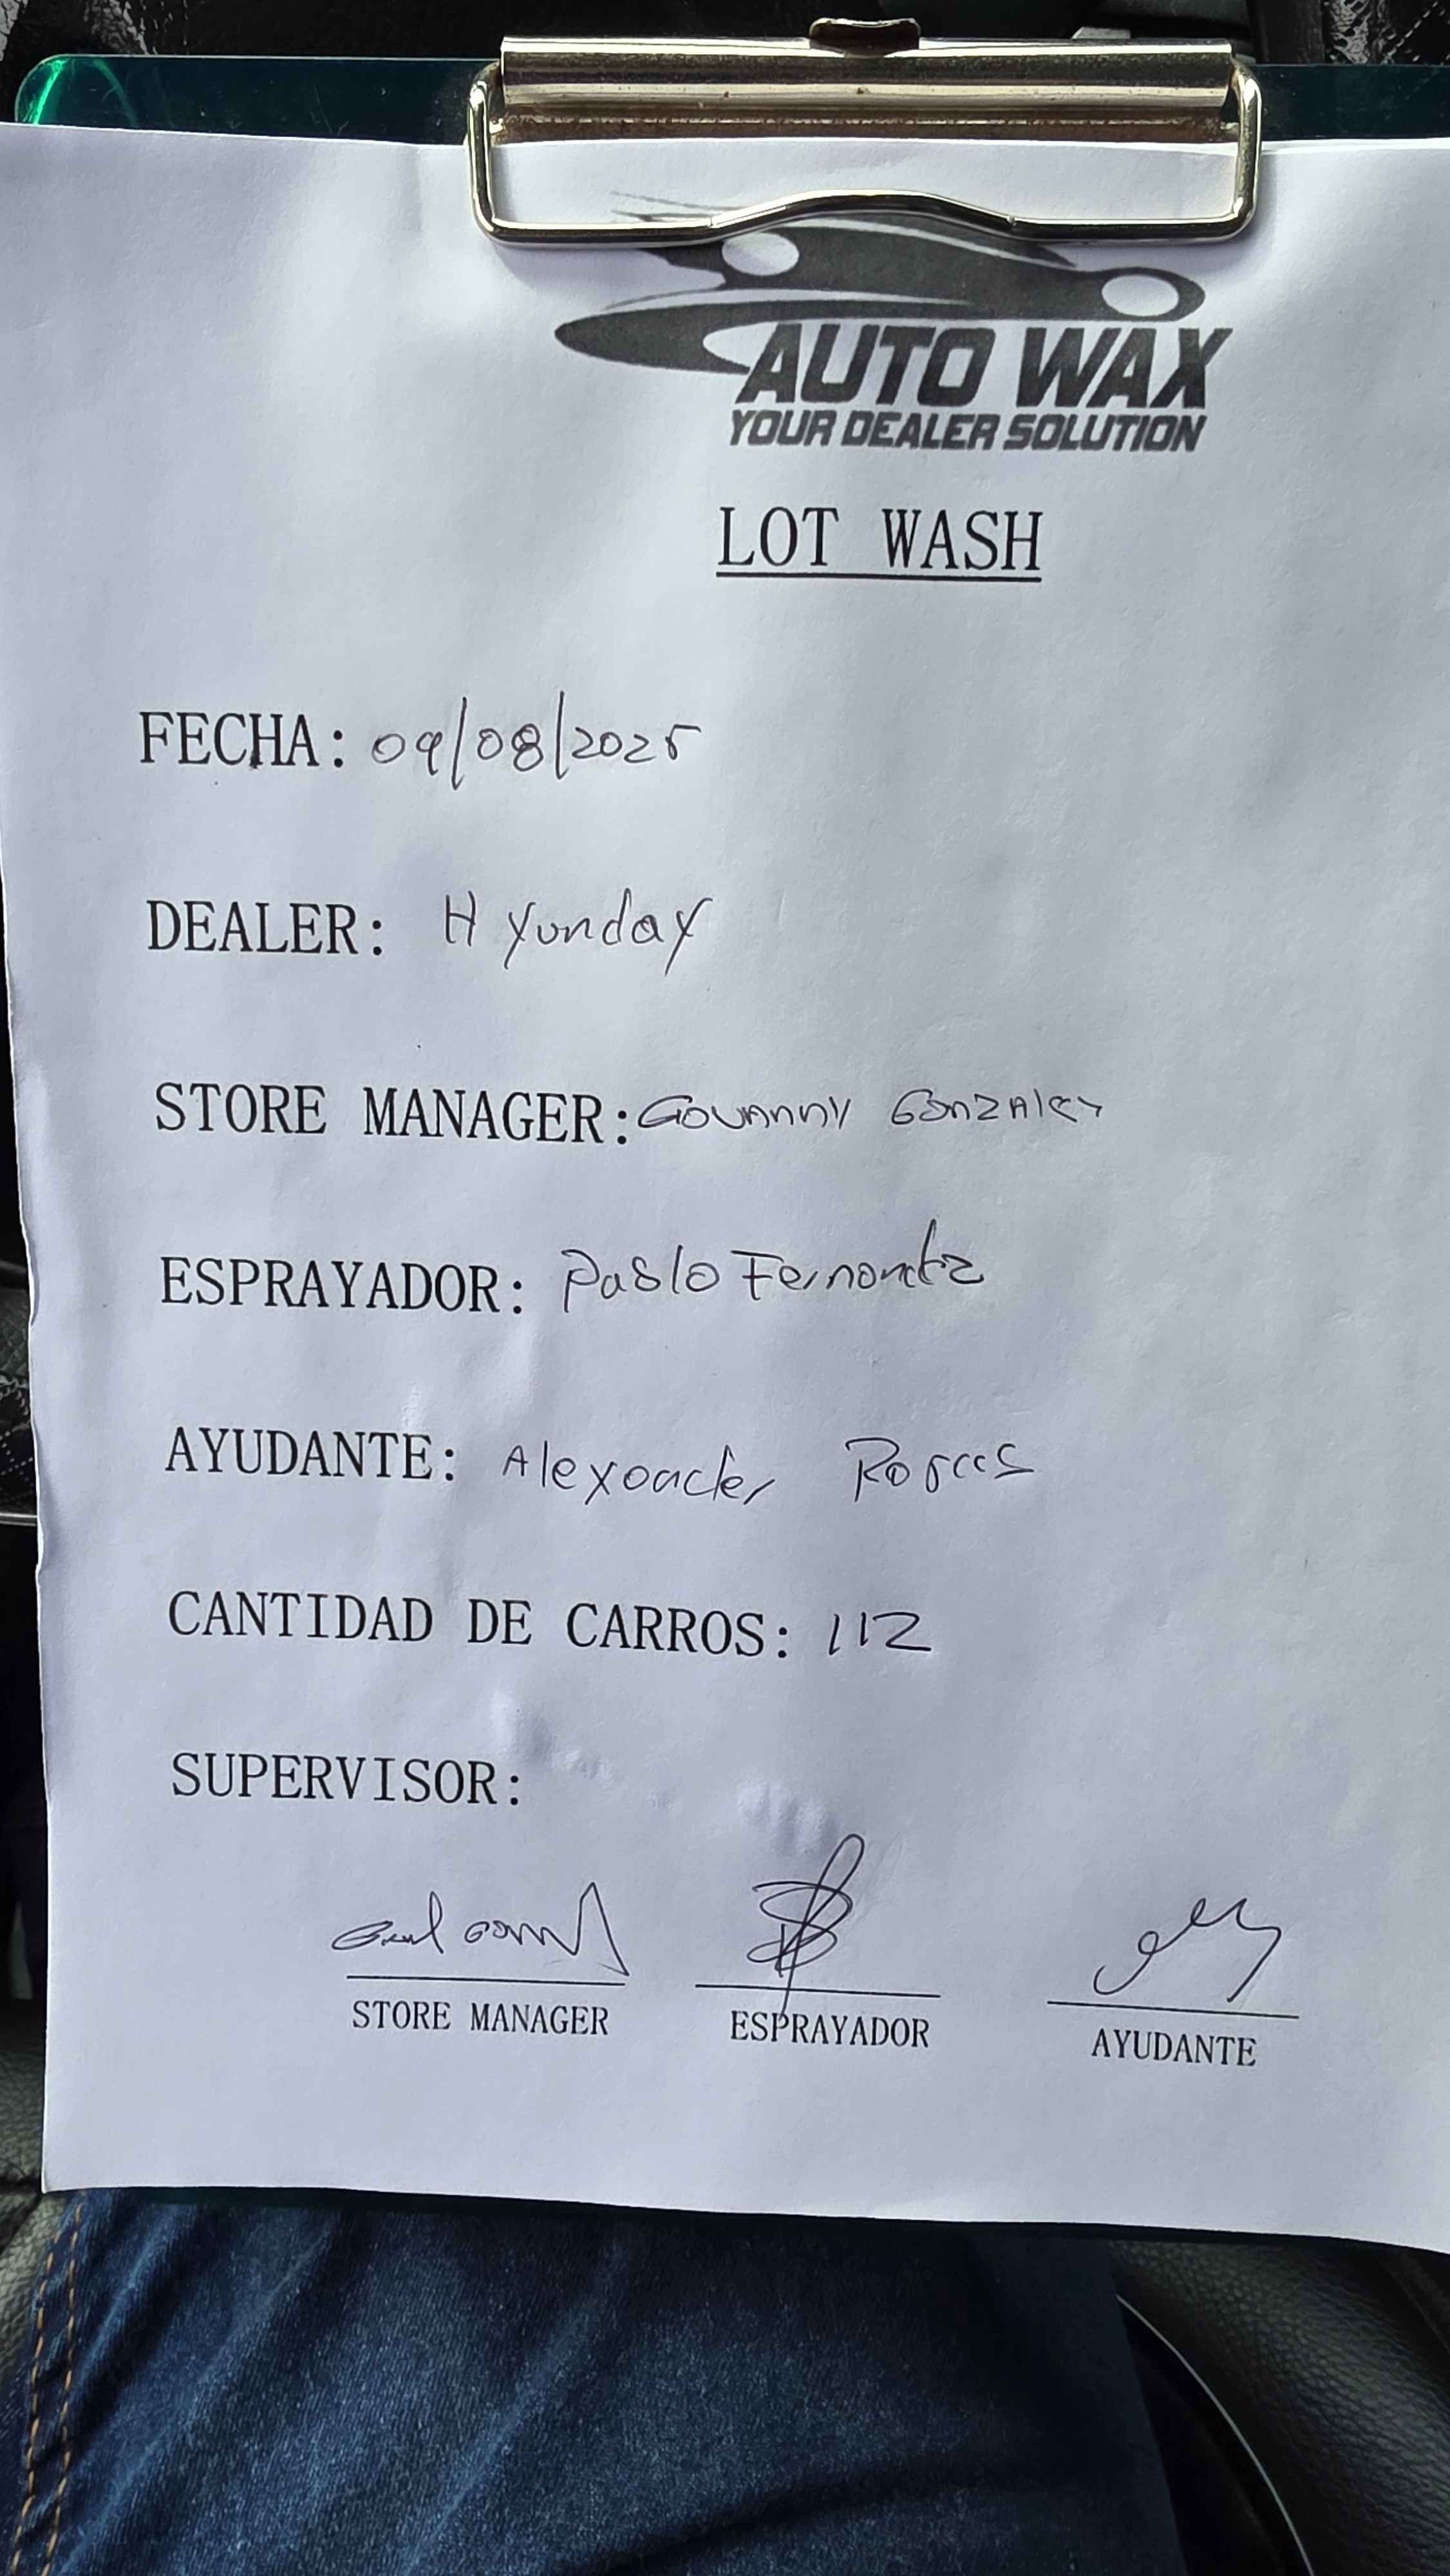 AUTO WAX
YOUR DEALER SOLUTION
LOT WASH
FECHA: 09/08/2025
DEALER: Hyunday
STORE MANAGER: Govanny Gonzalez
ESPRAYADOR: Pablo Fernandz
AYUDANTE: Alexander
CANTIDAD DE CARROS: 112
SUPERVISOR:
STORE MANAGER ESPRAYADOR AYUDANTE